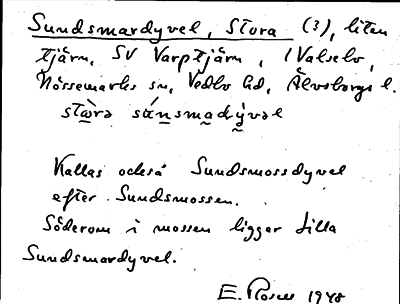 Sundsmardyvel, Stora (3), liten
tjärn, SV Varptjärn, 1 Valselv,
Nössemarks sn, Vedbo hd, Älvsborgs l.
stὼrə súnsmadỳvəl
Kallas också Sundsmossdyvel
efter Sundsmossen.
Söderom i mossen ligger Lilla
Sundsmardyvel.
E. Rosell 1948